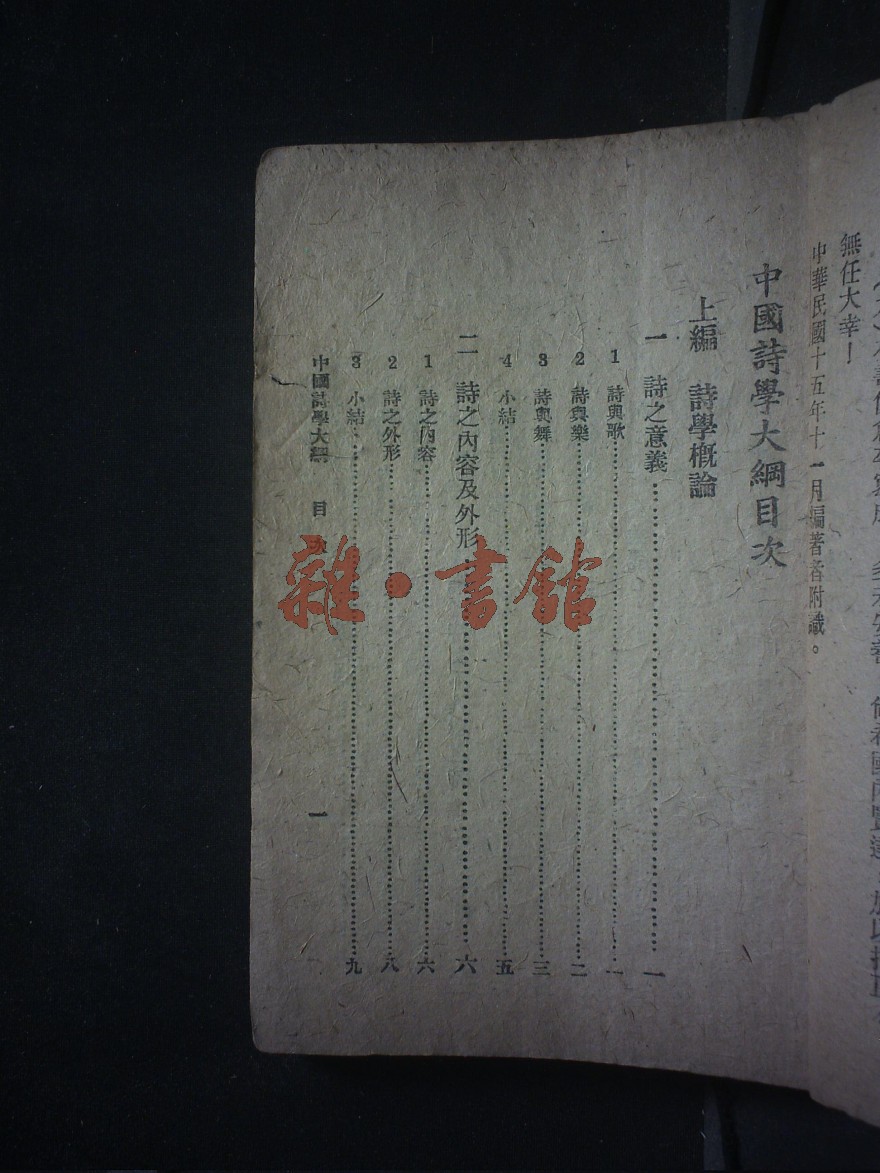 無任大幸！
中華民國十五年十一月編著者附識。
中國詩學大綱目次
上編　詩學概論
一　詩之意義……一
1　詩與歌……一
2　詩與樂……二
3　詩與舞……三
4　小結……五
二　詩之內容及外形……六
1　詩之內容……六
2　詩之外形……八
3　小結……九
中國詩學大綱　目　一
雜·書館